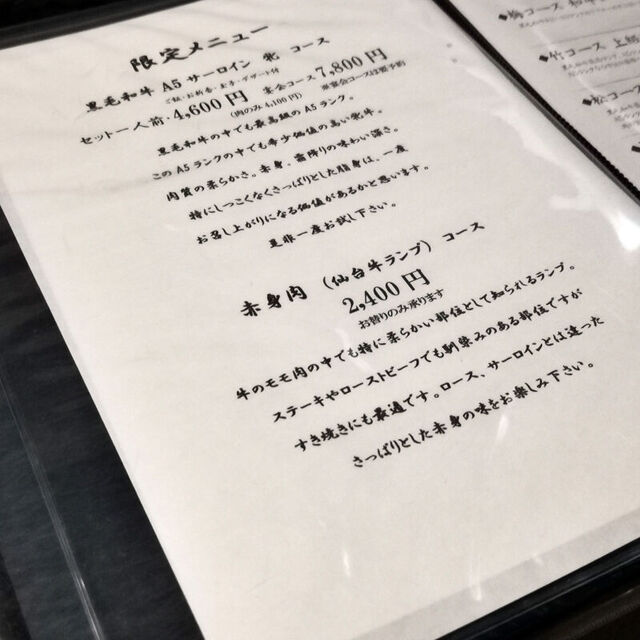 限定メニュー
黒毛和牛 A5 サーロイン 牝 コース
ご飯・お新香・お手・デザート付
セット一人前：4,600円 宴会コース7,800円
（肉のみ 4,100円） ※宴会コースは要予約
黒毛和牛の中でも最高級のA5ランク。
このA5ランクの中でも希少価値の高い牝牛。
肉質の柔らかさ、赤身、霜降りの味わい深さ。
特にしつこくなくさっぱりとした脂身は、一度
お召し上がりになる価値があるかと思います。
是非一度お試し下さい。
赤身肉 （仙台牛ランプ） コース
2,400円
お替りのみ承ります
牛のモモ肉の中でも特に柔らかい部位として知られるランプ。
ステーキやローストビーフでも馴染みのある部位ですが
すき焼きにも最適です。ロース、サーロインとは違った
さっぱりとした赤身の味をお楽しみ下さい。
◆梅コース 和牛
◆竹コース 上
◆松コース